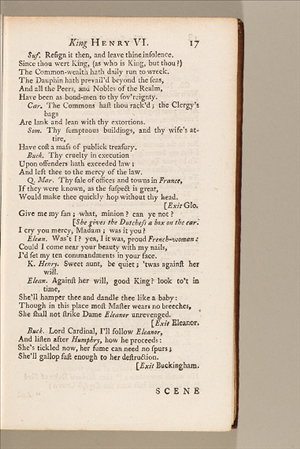 King HENRY VI. 17
Suf. Resign it then, and leave thine insolence.
Since thou wert King, (as who is King, but thou?)
The Common-wealth hath daily run to wreck.
The Dauphin hath prevail'd beyond the seas,
And all the Peers, and Nobles of the Realm,
Have been as bond-men to thy sov'reignty.
Car. The Commons hast thou rack'd; the Clergy's
bags
Are lank and lean with thy extortions.
Som. Thy sumptuous buildings, and thy wife's at-
tire,
Have cost a mass of publick treasury.
Buck. Thy cruelty in execution
Upon offenders hath exceeded law;
And left thee to the mercy of the law.
Q. Mar. Thy sale of offices and towns in France,
If they were known, as the suspect is great,
Would make thee quickly hop without thy head.
[Exit Glo.
Give me my fan; what, minion? can ye not?
[She gives the Dutchess a box on the ear.
I cry you mercy, Madam; was it you?
Elean. Was't I? yes, I it was, proud French-woman:
Could I come near your beauty with my nails,
I'd set my ten commandments in your face.
K. Henry. Sweet aunt, be quiet; 'twas against her
will.
Elean. Against her will, good King? look to't in
time,
She'll hamper thee and dandle thee like a baby:
Though in this place most Master wears no breeches,
She shall not strike Dame Eleanor unrevenged.
[Exit Eleanor.
Buck. Lord Cardinal, I'll follow Eleanor,
And listen after Humphry, how he proceeds:
She's tickled now, her fume can need no spurs;
She'll gallop fast enough to her destruction.
[Exit Buckingham.
SCENE